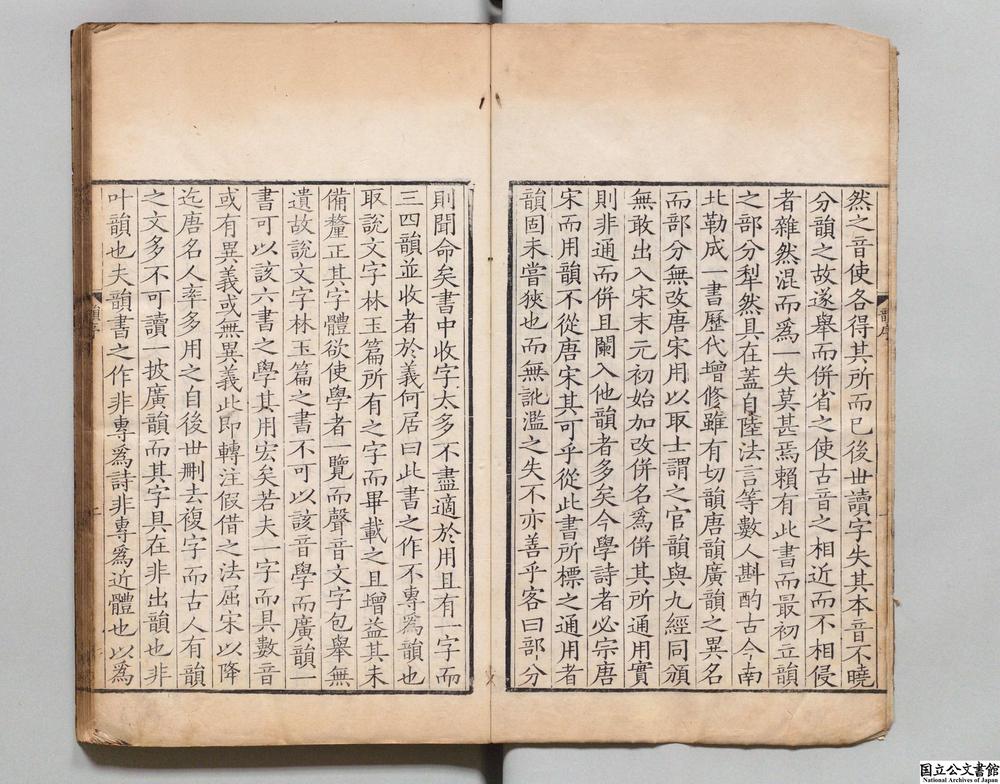 然之音使各得其所而已後世讀字失其本音不曉
分韻之故遂舉而併省之使古音之相近而不相侵
者雜然混而爲一失莫甚焉賴有此書而最初立韻
之部分犁然具在蓋自陸法言等數人斟酌古今南
北勒成一書歷代增修雖有切韻唐韻廣韻之異名
而部分無改唐宋用以取士謂之官韻與九經同頒
無敢出入宋末元初始加改併名爲併其所通用實
則非通而併且闌入他韻者多矣今學詩者必宗唐
宋而用韻不從唐宋其可乎從此書所標之通用者
韻固未嘗狹也而無訛濫之失不亦善乎客曰部分
則聞命矣書中收字太多不盡適於用且有一字而
三四韻並收者於義何居曰此書之作不專爲韻也
取說文字林玉篇所有之字而畢載之且增益其未
備釐正其字體欲使學者一覽而聲音文字包舉無
遺故說文字林玉篇之書不可以該音學而廣韻一
書可以該六書之學其用宏矣若夫一字而具數音
或有異義或無異義此即轉注假借之法屈宋以降
迄唐名人率多用之自後世刪去複字而古人有韻
之文多不可讀一披廣韻而其字具在非出韻也非
叶韻也夫韻書之作非專爲詩非專爲近體也以爲
国立公文書館
National Archives of Japan